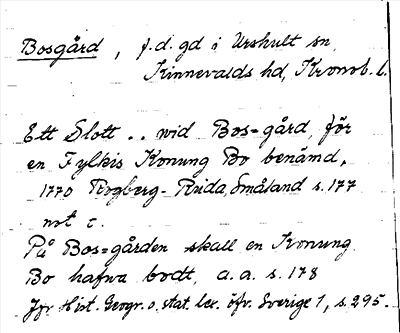 Bosgård, f.d. gd i Urshult sn,
Kinnevalds hd, Kronob. l.
Ett Slott .. wid Bos=gård, för
en Fylkis Konung Bo benämd,
1770 Rogberg-Ruda, Småland s. 177
not c.
På Bos=gården skall en Konung
Bo hafwa bodt, a.a. s. 178
Jfr Hist. Geogr. o. stat. lex. öfv. Sverige 1, s. 295.